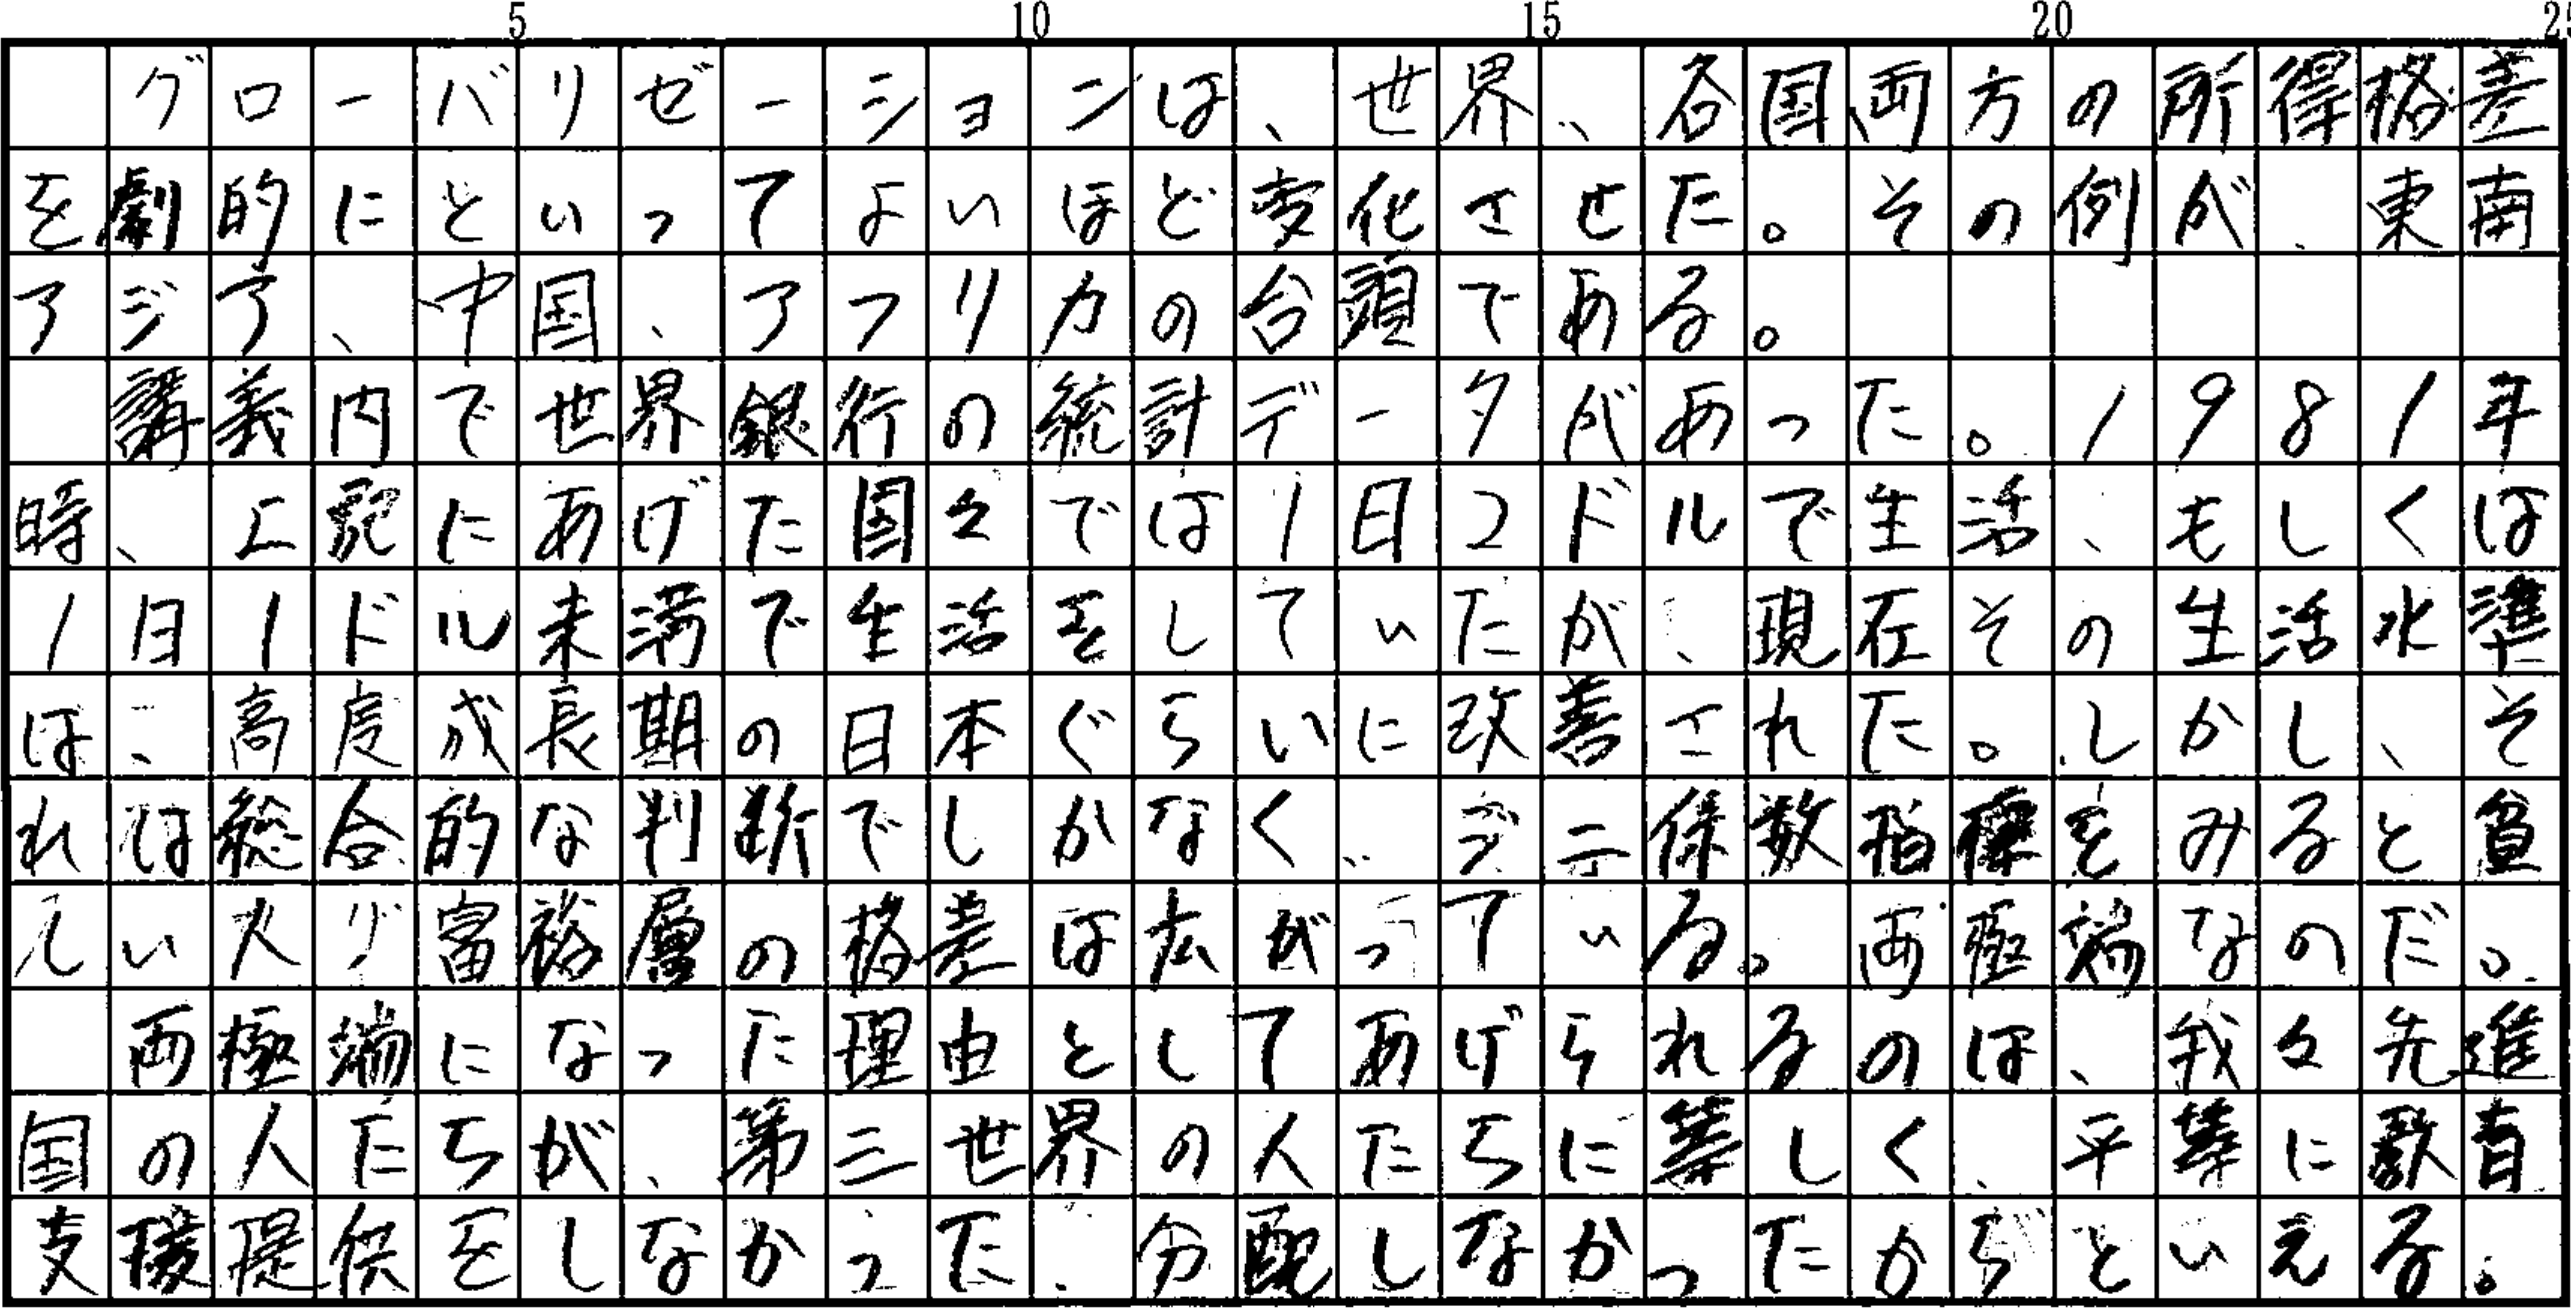 5 10 15 20
グローバリゼーションは、世界、各国両方の所得格差
を劇的にといってよいほど変化させた。その例が、東南
アジア、中国、アフリカの台頭である。
講義内で世界銀行の統計データがあった。1981年
時、上記にあげた国々では1日2ドルで生活、もしくは
1日1ドル未満で生活をしていたが、現在その生活水準
は、高度成長期の日本ぐらいに改善された。しかし、そ
れは総合的な判断でしかなく、ジニ係数指標をみると貧
しい人リ富裕層の格差は広がっている。両極端なのだ。
両極端になった理由としてあげられるのは、我々先進
国の人たちが、第三世界の人たちに等しく、平等に教育
支援提供をしなかった、分配しなかったからといえる。